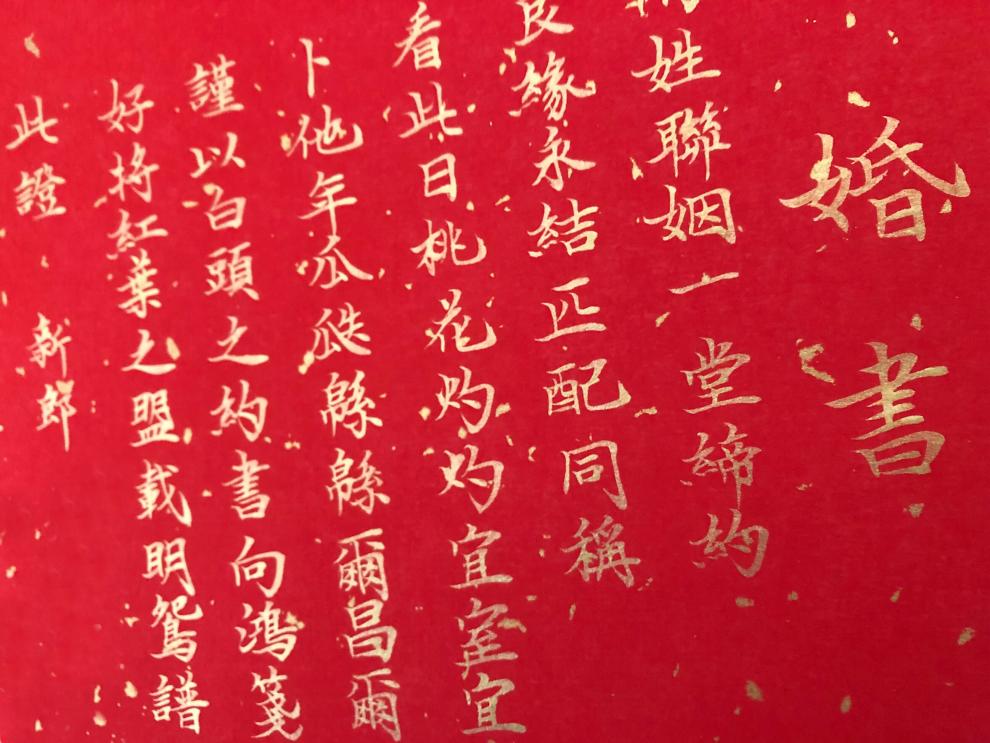 婚書
姓聯姻一堂締約
良緣永結匹配同稱
看此日桃花灼灼宜室宜
卜他年瓜瓞緜緜爾昌爾
謹以白頭之約書向鴻箋
好將紅葉之盟載明鴛譜
此證 新郎